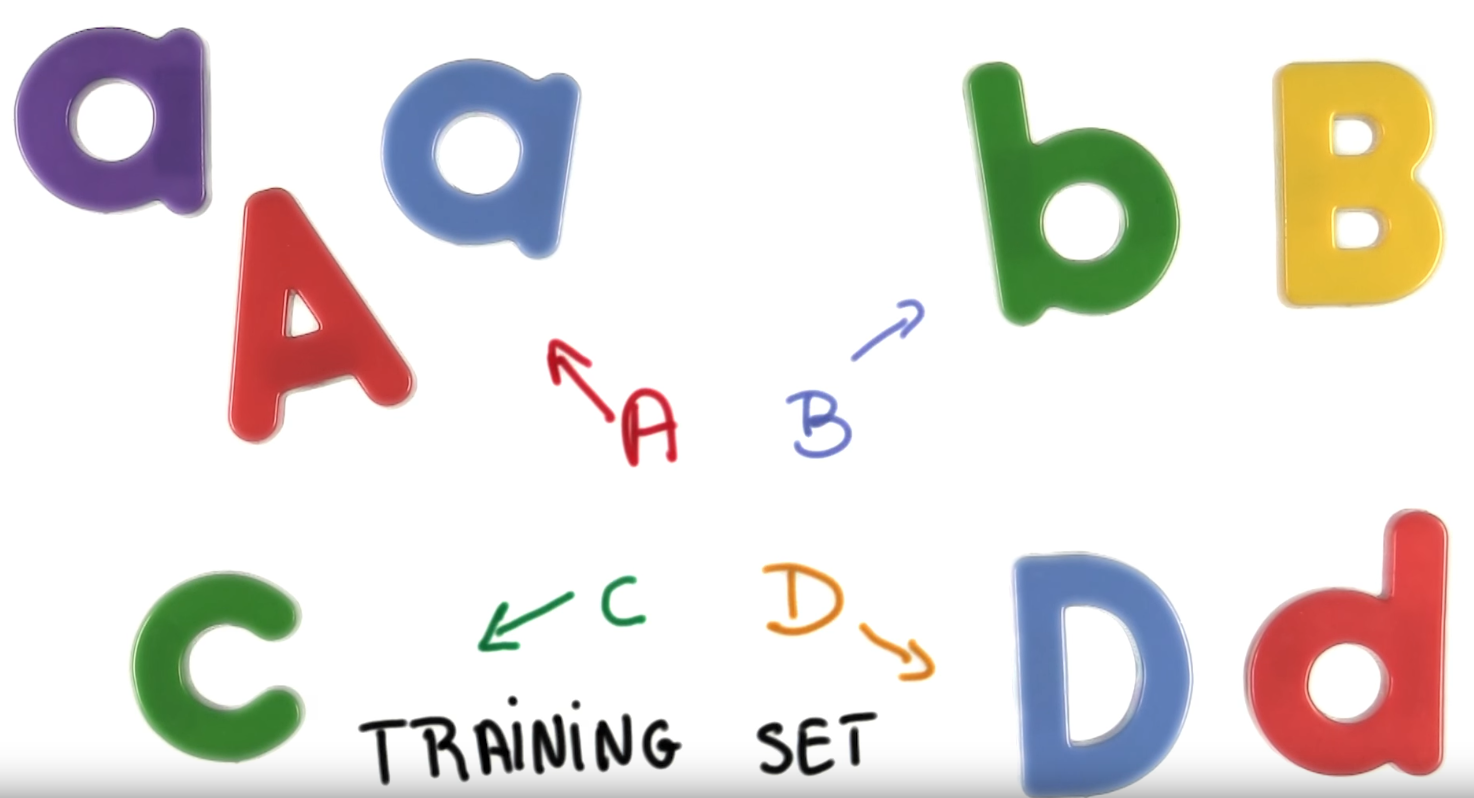 a a A
b B
A
B
C
C
D
D d
TRAINING SET